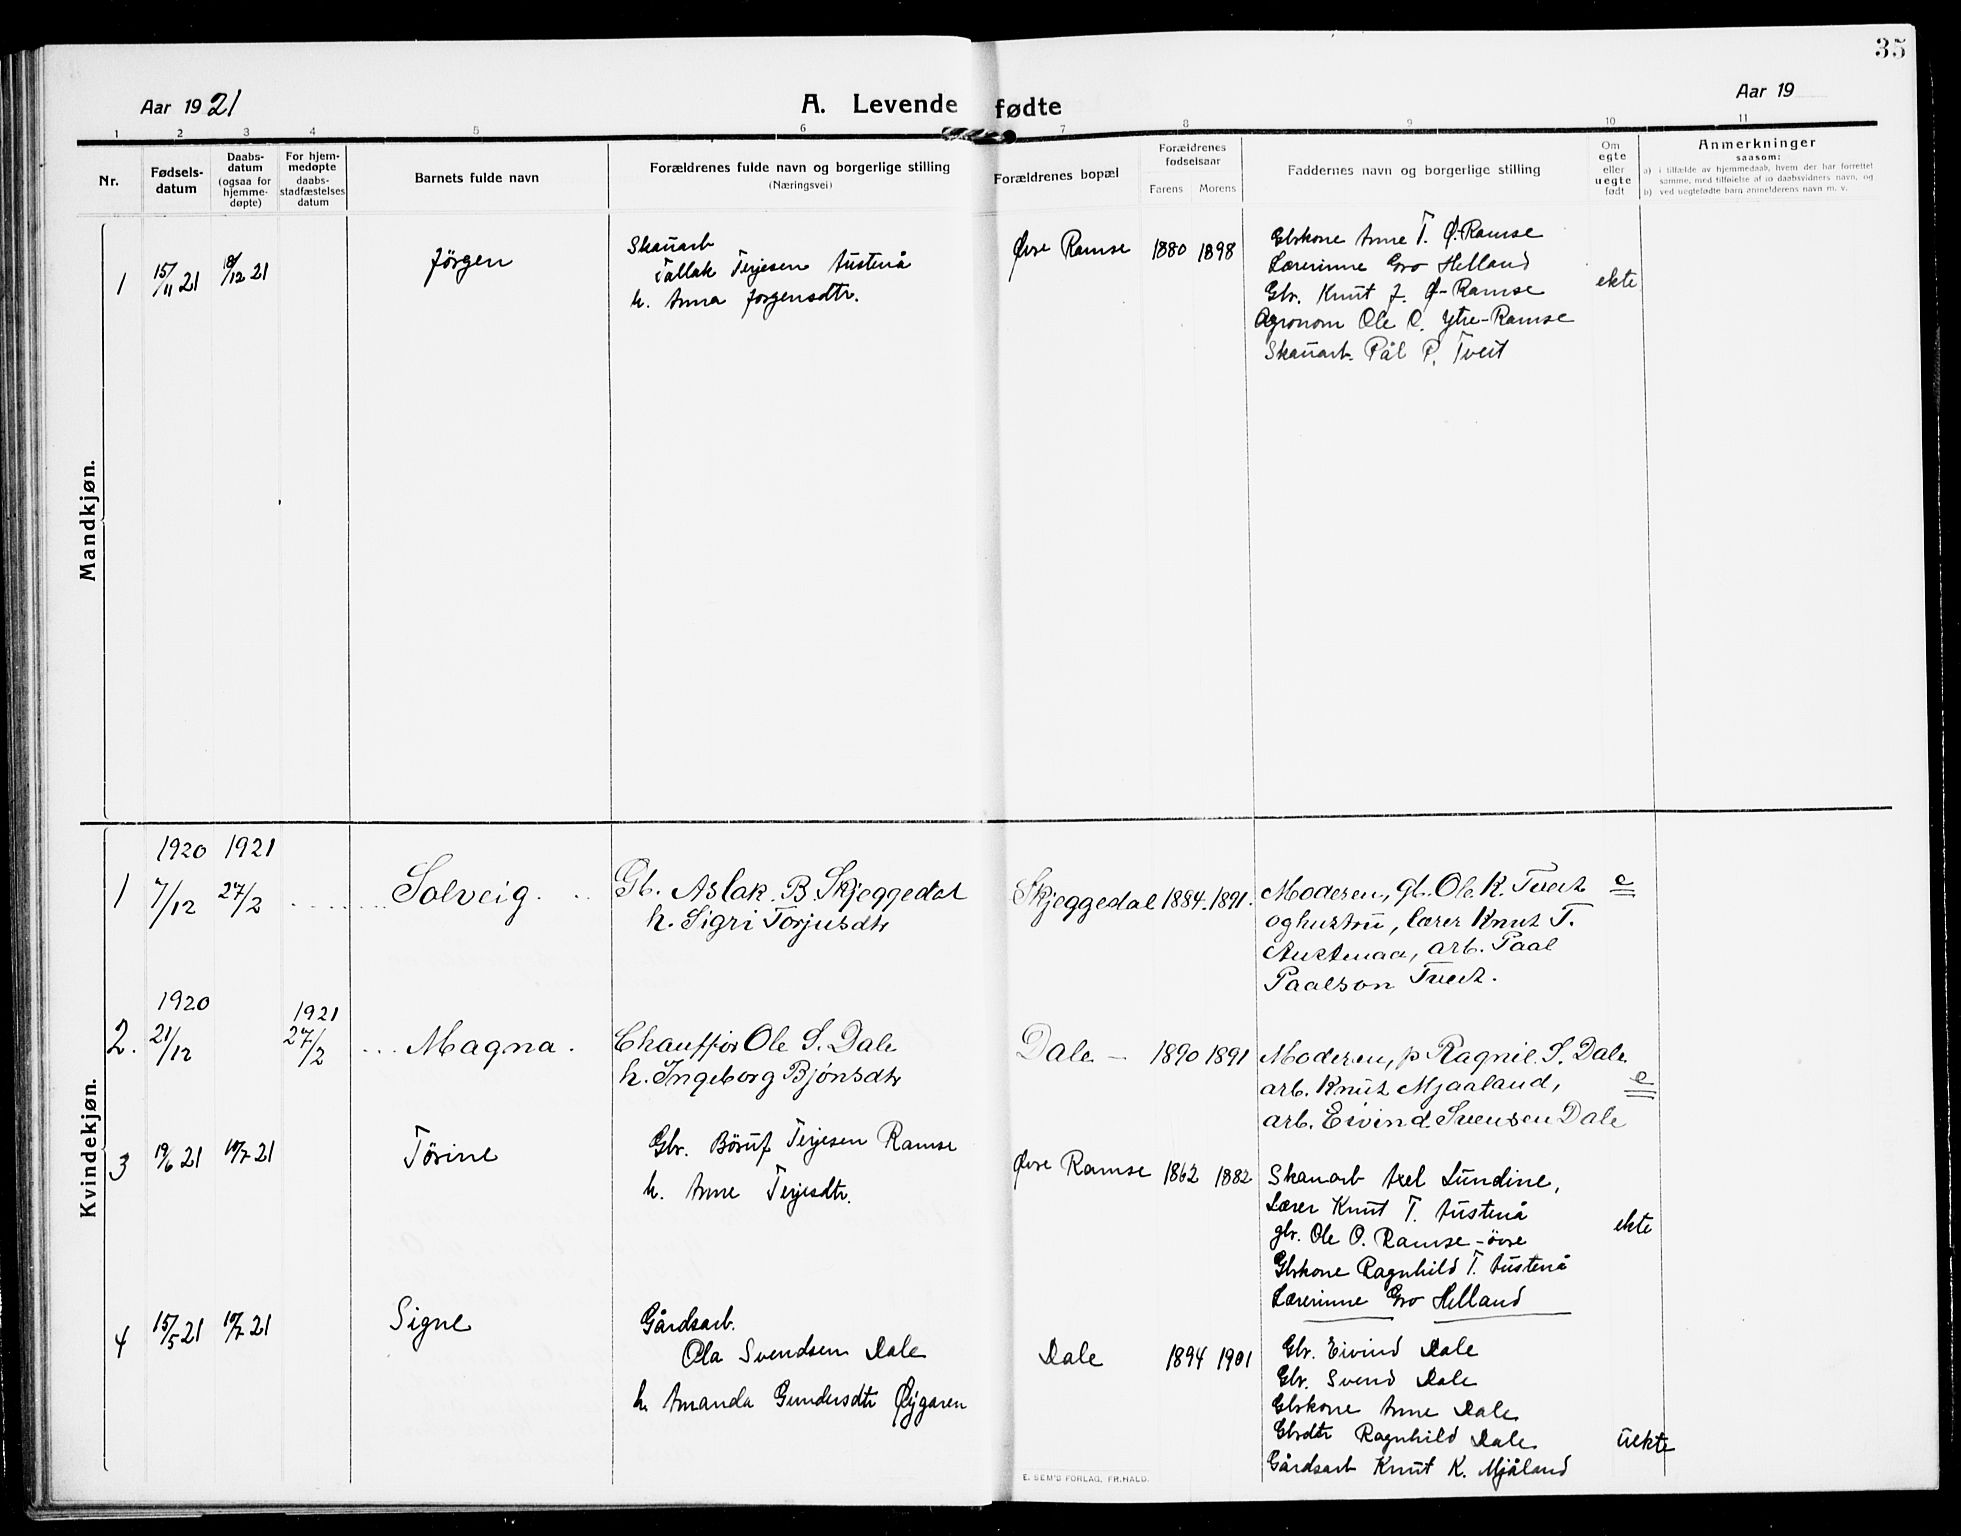 35
Aar 1921
A. Levende fødte
Aar 19
1 2 3 4 5 6 7 8 9 10 11
Nr.
Fødsels-
datum
Daabs-
datum
(ogsaa for
hjemme-
døpte)
For hjem-
medøpte
daabs-
stadfæstelses
datum
Barnets fulde navn
Forældrenes fulde navn og borgerlige stilling
(Næringsvei)
Forældrenes bopæl
Forældrenes
fødselsaar
Farens Morens
Faddernes navn og borgerlige stilling
Om
egte
eller
uegte
født
Anmerkninger
saasom:
a) i tilfælde av hjemmedaab, hvem der har forrettet
samme, med tilføielse af to daabsvidners navn, og
b) ved uegtefødte barn anmelderens navn m. v.
Mandkjøn.
1 15/11 21 18/12 21 Jørgen
Skauarb
Tallak Terjesen Austenå
h. Anna Jorgensdtr.
Øvre Ramse 1880 1898
Gbrkone Anne T. Ø-Ramse
Lærerinne Gro Helland
Gbr. Knut J. Ø-Ramse
Agronom Ole O. Ytre-Ramse
Skauarb. Pål P. Tveit
ekte
Kvindekjøn.
1920 1921
1 7/12 27/2 Solveig.
Gb. Aslak. B. Skjeggedal
h. Sigri Torjusdtr
Skjeggedal 1884. 1891.
Moderen, gb. Ole K. Tveit
og hustru, lærer Knut T.
Austenaa, arb. Paal
Paalson Tveit.
e
1920
1921
2. 21/12 27/2 Magna.
Chauffør Ole S. Dale
h. Ingeborg Bjønsdtr
Dale – 1890 1891
Moderen, p Ragnil. S. Dale
arb. Knut Mjaaland,
arb. Eivind Svensen Dale
e
3 19/6 21 10/7 21 Tørine
Gbr. Børuf Terjesen Ramse
h. Anne Terjesdtr.
Øvre Ramse 1862 1882
Skauarb Axel Lundine,
Lærer Knut T. Austenå
gbr. Ole O. Ramse-övre
Gbrkone Ragnhild T. Austenå
Lærerinne Gro Helland
ekte
4 15/5 21 10/7 21 Signe
Gårdsarb.
Ola Svendsen Dale
h. Amanda Gundersdtr Øygaren
Dale 1894 1901
Gbr. Eivind Dale
Gbr. Svend Dale
Gbrkone Anne Dale
Gbrdtr Ragnhild Dale
Gårdsarb Knut K. Mjåland
uekte
E. SEM'S FORLAG, FR.HALD.